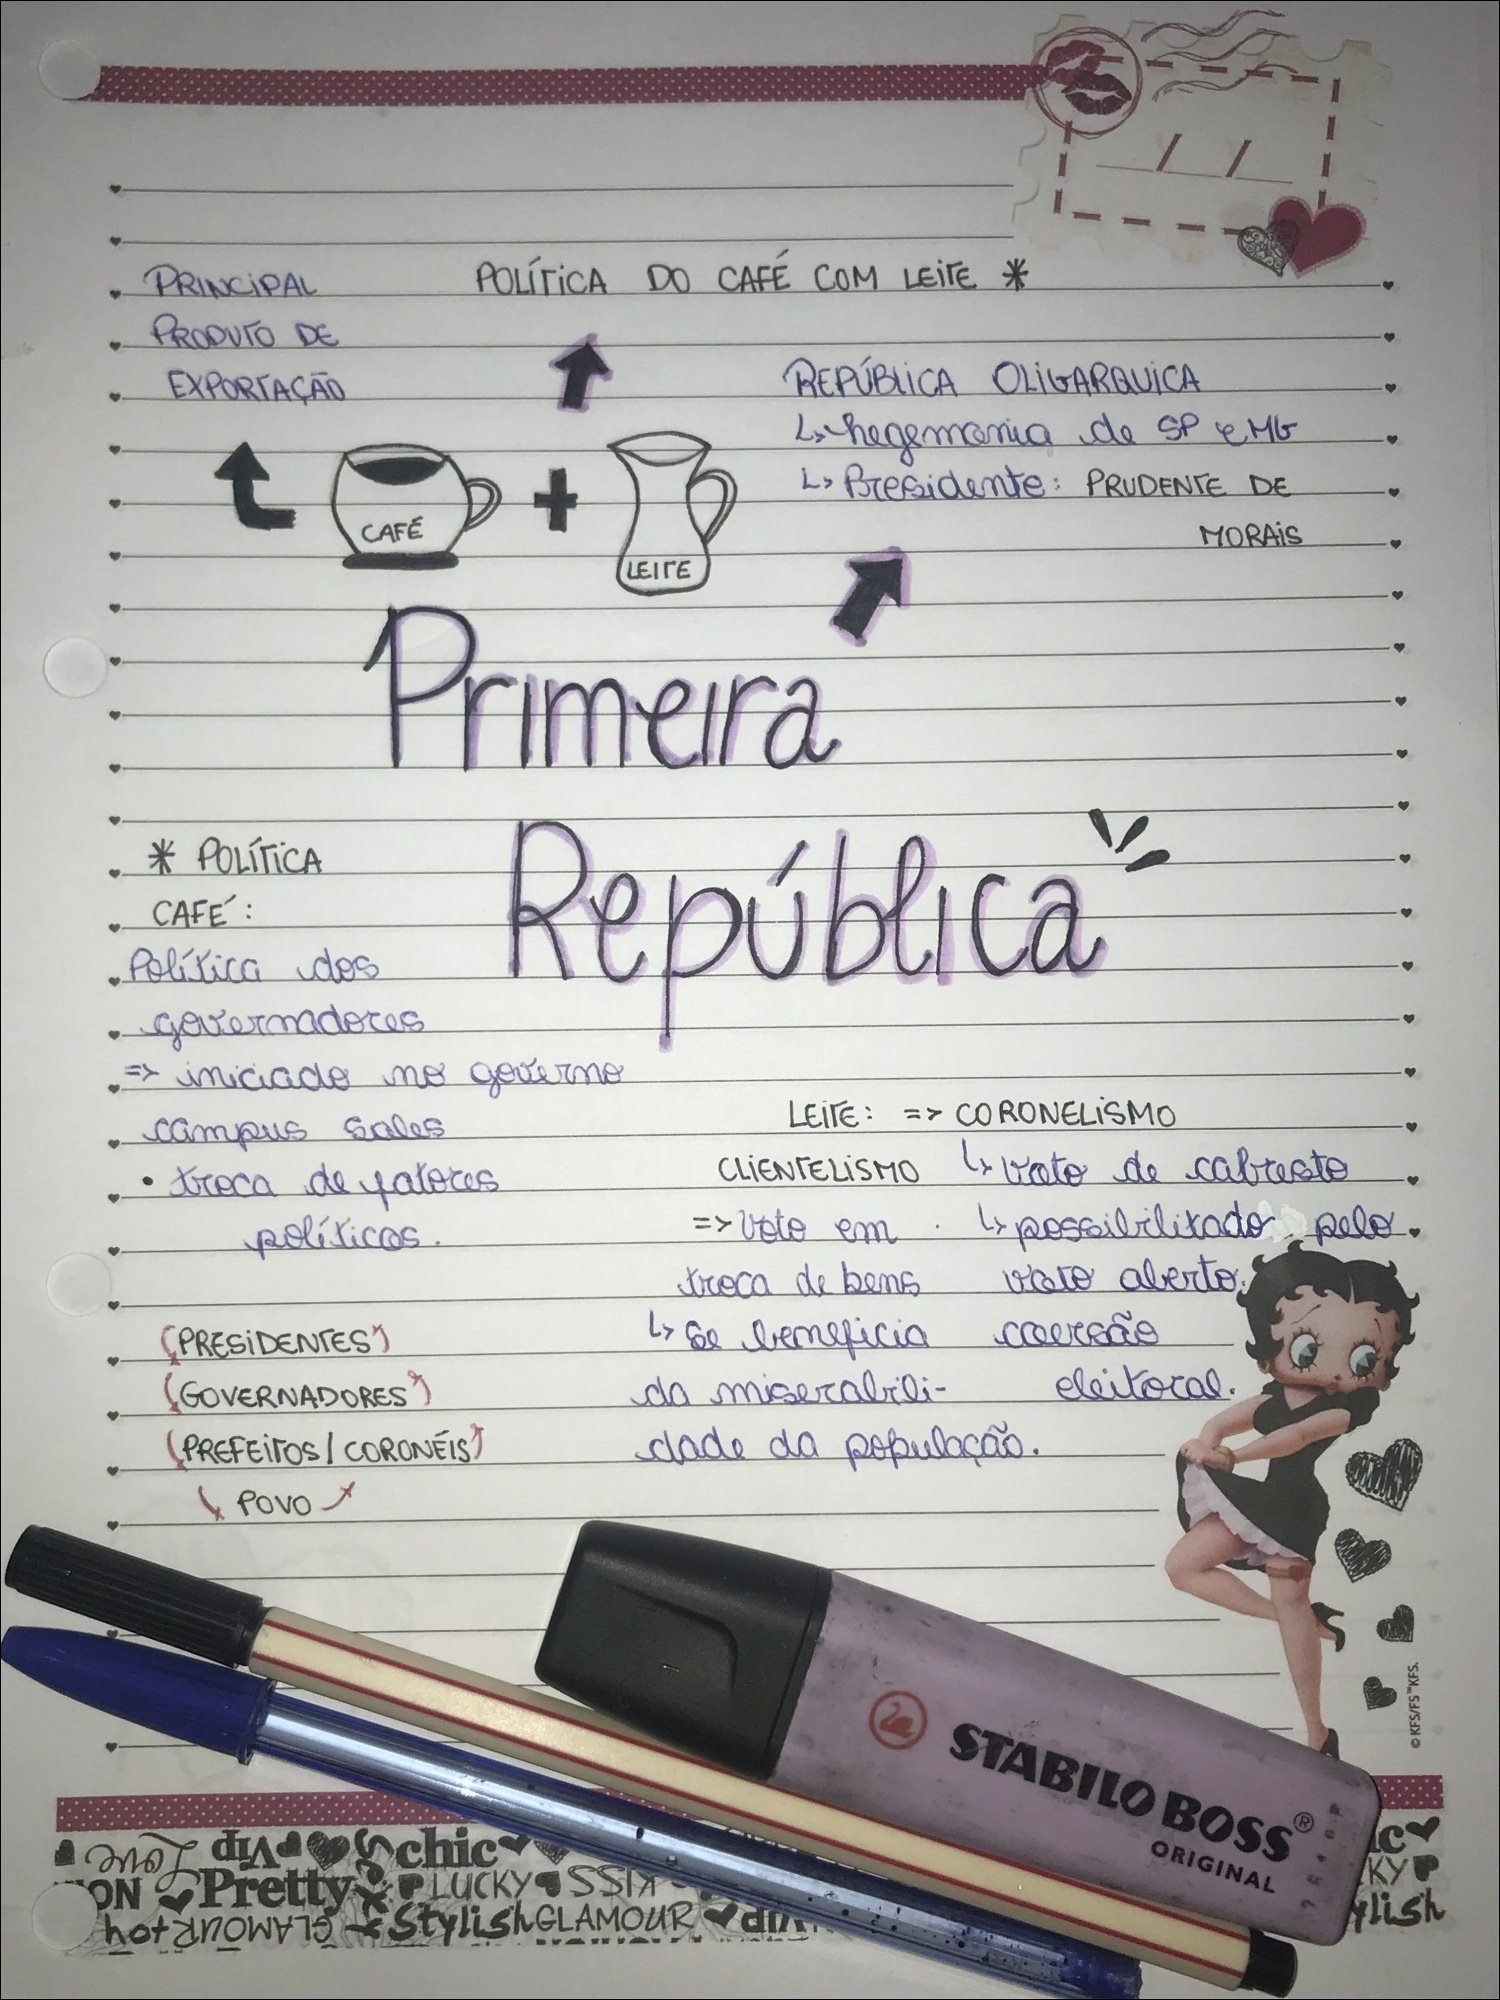 PRINCIPAL
PRODUTO DE
EXPORTAÇÃO
POLÍTICA DO CAFÉ COM LEITE *
REPÚBLICA OLIGARQUICA
↳ hegemonia de SP e MG
↳ Presidente: PRUDENTE DE
MORAIS
CAFÉ
+
LEITE
Primeira
República
* POLÍTICA
CAFÉ:
Política dos
governadores
=> iniciado no governo
campus sales
• troca de fatores
políticos.
(PRESIDENTES)
(GOVERNADORES)
(PREFEITOS/CORONÉIS)
POVO
LEITE: => CORONELISMO
CLIENTELISMO
↳ voto de cabresto
=> Voto em
↳ possibilitado pelo
troca de bens
voto aberto.
↳ se beneficia
coersão
da miserabili-
eleitoral.
dade da população.
© KFS/FS™KFS.
STABILO BOSS®
ORIGINAL
Love Vip chic
Pretty LUCKY KISS
hot GLAMOUR Stylish GLAMOUR